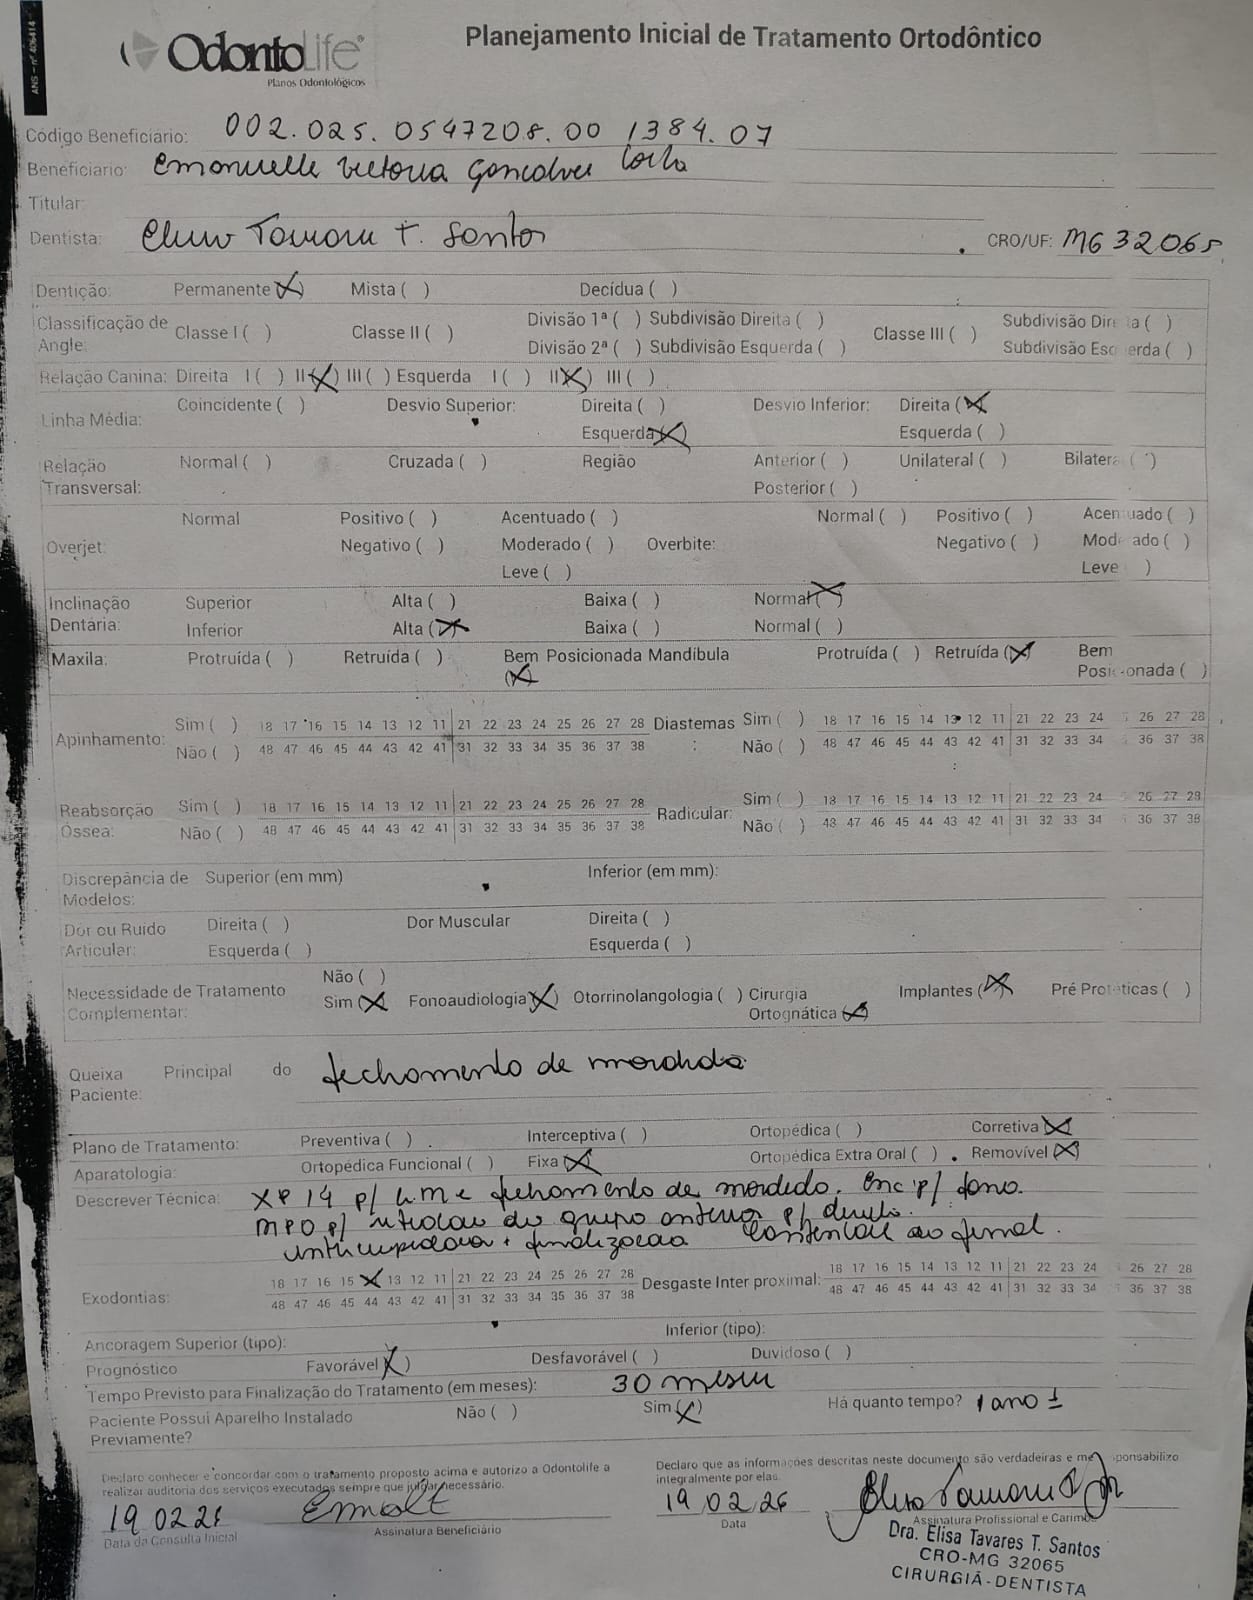 ANS - nº 406414
OdontoLife®
Planos Odontológicos
Planejamento Inicial de Tratamento Ortodôntico
Código Beneficiário: 002.025.0547208.00 1384.07
Beneficiário: Emanuelle Victoria Gonçalves
Titular:
Dentista: Tavares T. Santos CRO/UF: MG 32065
Dentição: Permanente (X) Mista ( ) Decídua ( )
Classificação de Angle: Classe I ( ) Classe II ( ) Divisão 1ª ( ) Subdivisão Direita ( ) Classe III ( ) Subdivisão Direita ( )
Divisão 2ª ( ) Subdivisão Esquerda ( ) Subdivisão Esquerda ( )
Relação Canina: Direita I ( ) II (X) III ( ) Esquerda I ( ) II (X) III ( )
Linha Média: Coincidente ( ) Desvio Superior: Direita ( ) Desvio Inferior: Direita (X)
Esquerda (X) Esquerda ( )
Relação Transversal: Normal ( ) Cruzada ( ) Região Anterior ( ) Unilateral ( ) Bilateral ( )
Posterior ( )
Overjet: Normal Positivo ( ) Acentuado ( ) Normal ( ) Positivo ( ) Acentuado ( )
Negativo ( ) Moderado ( ) Overbite: Negativo ( ) Moderado ( )
Leve ( ) Leve ( )
Inclinação Dentária: Superior Alta ( ) Baixa ( ) Normal (X)
Inferior Alta (X) Baixa ( ) Normal ( )
Maxila: Protruída ( ) Retruída ( ) Bem Posicionada (X) Mandíbula Protruída ( ) Retruída (X) Bem Posicionada ( )
Apinhamento: Sim ( ) 18 17 16 15 14 13 12 11 21 22 23 24 25 26 27 28 Diastemas Sim ( ) 18 17 16 15 14 13 12 11 21 22 23 24 26 27 28
Não ( ) 48 47 46 45 44 43 42 41 31 32 33 34 35 36 37 38 : Não ( ) 48 47 46 45 44 43 42 41 31 32 33 34 36 37 38
Reabsorção Óssea: Sim ( ) 18 17 16 15 14 13 12 11 21 22 23 24 25 26 27 28 Radicular: Sim ( ) 18 17 16 15 14 13 12 11 21 22 23 24 26 27 28
Não ( ) 48 47 46 45 44 43 42 41 31 32 33 34 35 36 37 38 Não ( ) 48 47 46 45 44 43 42 41 31 32 33 34 36 37 38
Discrepância de Modelos: Superior (em mm) Inferior (em mm):
Dor ou Ruído Articular: Direita ( ) Dor Muscular Direita ( )
Esquerda ( ) Esquerda ( )
Não ( )
Necessidade de Tratamento Complementar: Sim (X) Fonoaudiologia (X) Otorrinolangologia ( ) Cirurgia Ortognática (X) Implantes (X) Pré Protéticas ( )
Queixa Principal do Paciente: fechamento de mordida
Plano de Tratamento: Preventiva ( ) Interceptiva ( ) Ortopédica ( ) Corretiva (X)
Aparatologia: Ortopédica Funcional ( ) Fixa (X) Ortopédica Extra Oral ( ) Removível (X)
Descrever Técnica: p/ fechamento de mordida. Enc p/ fono.
p/ do grupo p/
+ finalização ao final.
Exodontias: 18 17 16 15 X 13 12 11 21 22 23 24 25 26 27 28 Desgaste Inter proximal: 18 17 16 15 14 13 12 11 21 22 23 24 26 27 28
48 47 46 45 44 43 42 41 31 32 33 34 35 36 37 38 48 47 46 45 44 43 42 41 31 32 33 34 36 37 38
Ancoragem Superior (tipo): Inferior (tipo):
Prognóstico Favorável (X) Desfavorável ( ) Duvidoso ( )
Tempo Previsto para Finalização do Tratamento (em meses): 30 meses
Paciente Possui Aparelho Instalado Previamente? Não ( ) Sim (X) Há quanto tempo? 1 ano ±
Declaro conhecer e concordar com o tratamento proposto acima e autorizo a Odontolife a
realizar auditoria dos serviços executados sempre que julgar necessário.
Declaro que as informações descritas neste documento são verdadeiras e me responsabilizo
integralmente por elas.
19 02 26
Data da Consulta Inicial
Assinatura Beneficiário
19 02 26
Data
Assinatura Profissional e Carimbo
Dra. Elisa Tavares T. Santos
CRO-MG 32065
CIRURGIÃ-DENTISTA